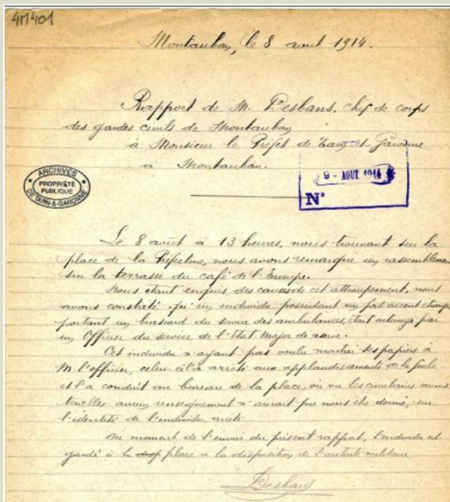 4M401
Montauban, le 8 août 1914.
Rapport de M. Desbans, chef de corps
des gardes civils de Montauban
à Monsieur le Préfet de Tarn et Garonne
à Montauban.
ARCHIVES
PROPRIÉTÉ
PUBLIQUE
DE TARN-&-GARONNE
9 - AOUT 1914
N°
Le 8 août à 13 heures, nous trouvant sur la
place de la Préfecture, nous avons remarqué un rassemblement
sur la terrasse du café de l'Europe.
Nous étant enquis des causes de cet attroupement, nous
avons constaté qu'un individu possédant un fort accent étranger
portant un brassard du service des ambulances, était interrogé par
un Officier du service de l'Etat Major de
Cet individu n'ayant pas voulu montrer ses papiers à
M. l'officier, celui-ci l'a arrêté aux applaudissements de la foule
et l'a conduit au bureau de la place, où
aucun renseignement n'ayant pu nous être donné, sur
l'identité de l'individu arrêté.
Au moment de l'envoi du présent rapport, l'individu est
gardé à la place à la disposition de l'autorité militaire
Desbans